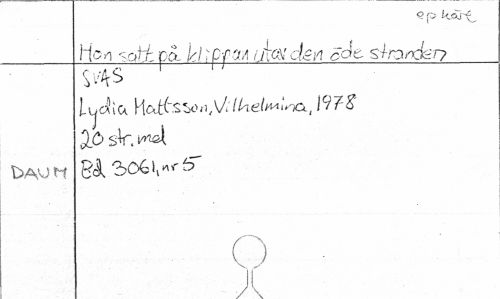 ep kärt
Hon satt på klippan utav den öde stranden
SVAS
Lydia Mattsson, Vilhelmina, 1978
20 str. mel
DAUM Bd 3061, nr 5